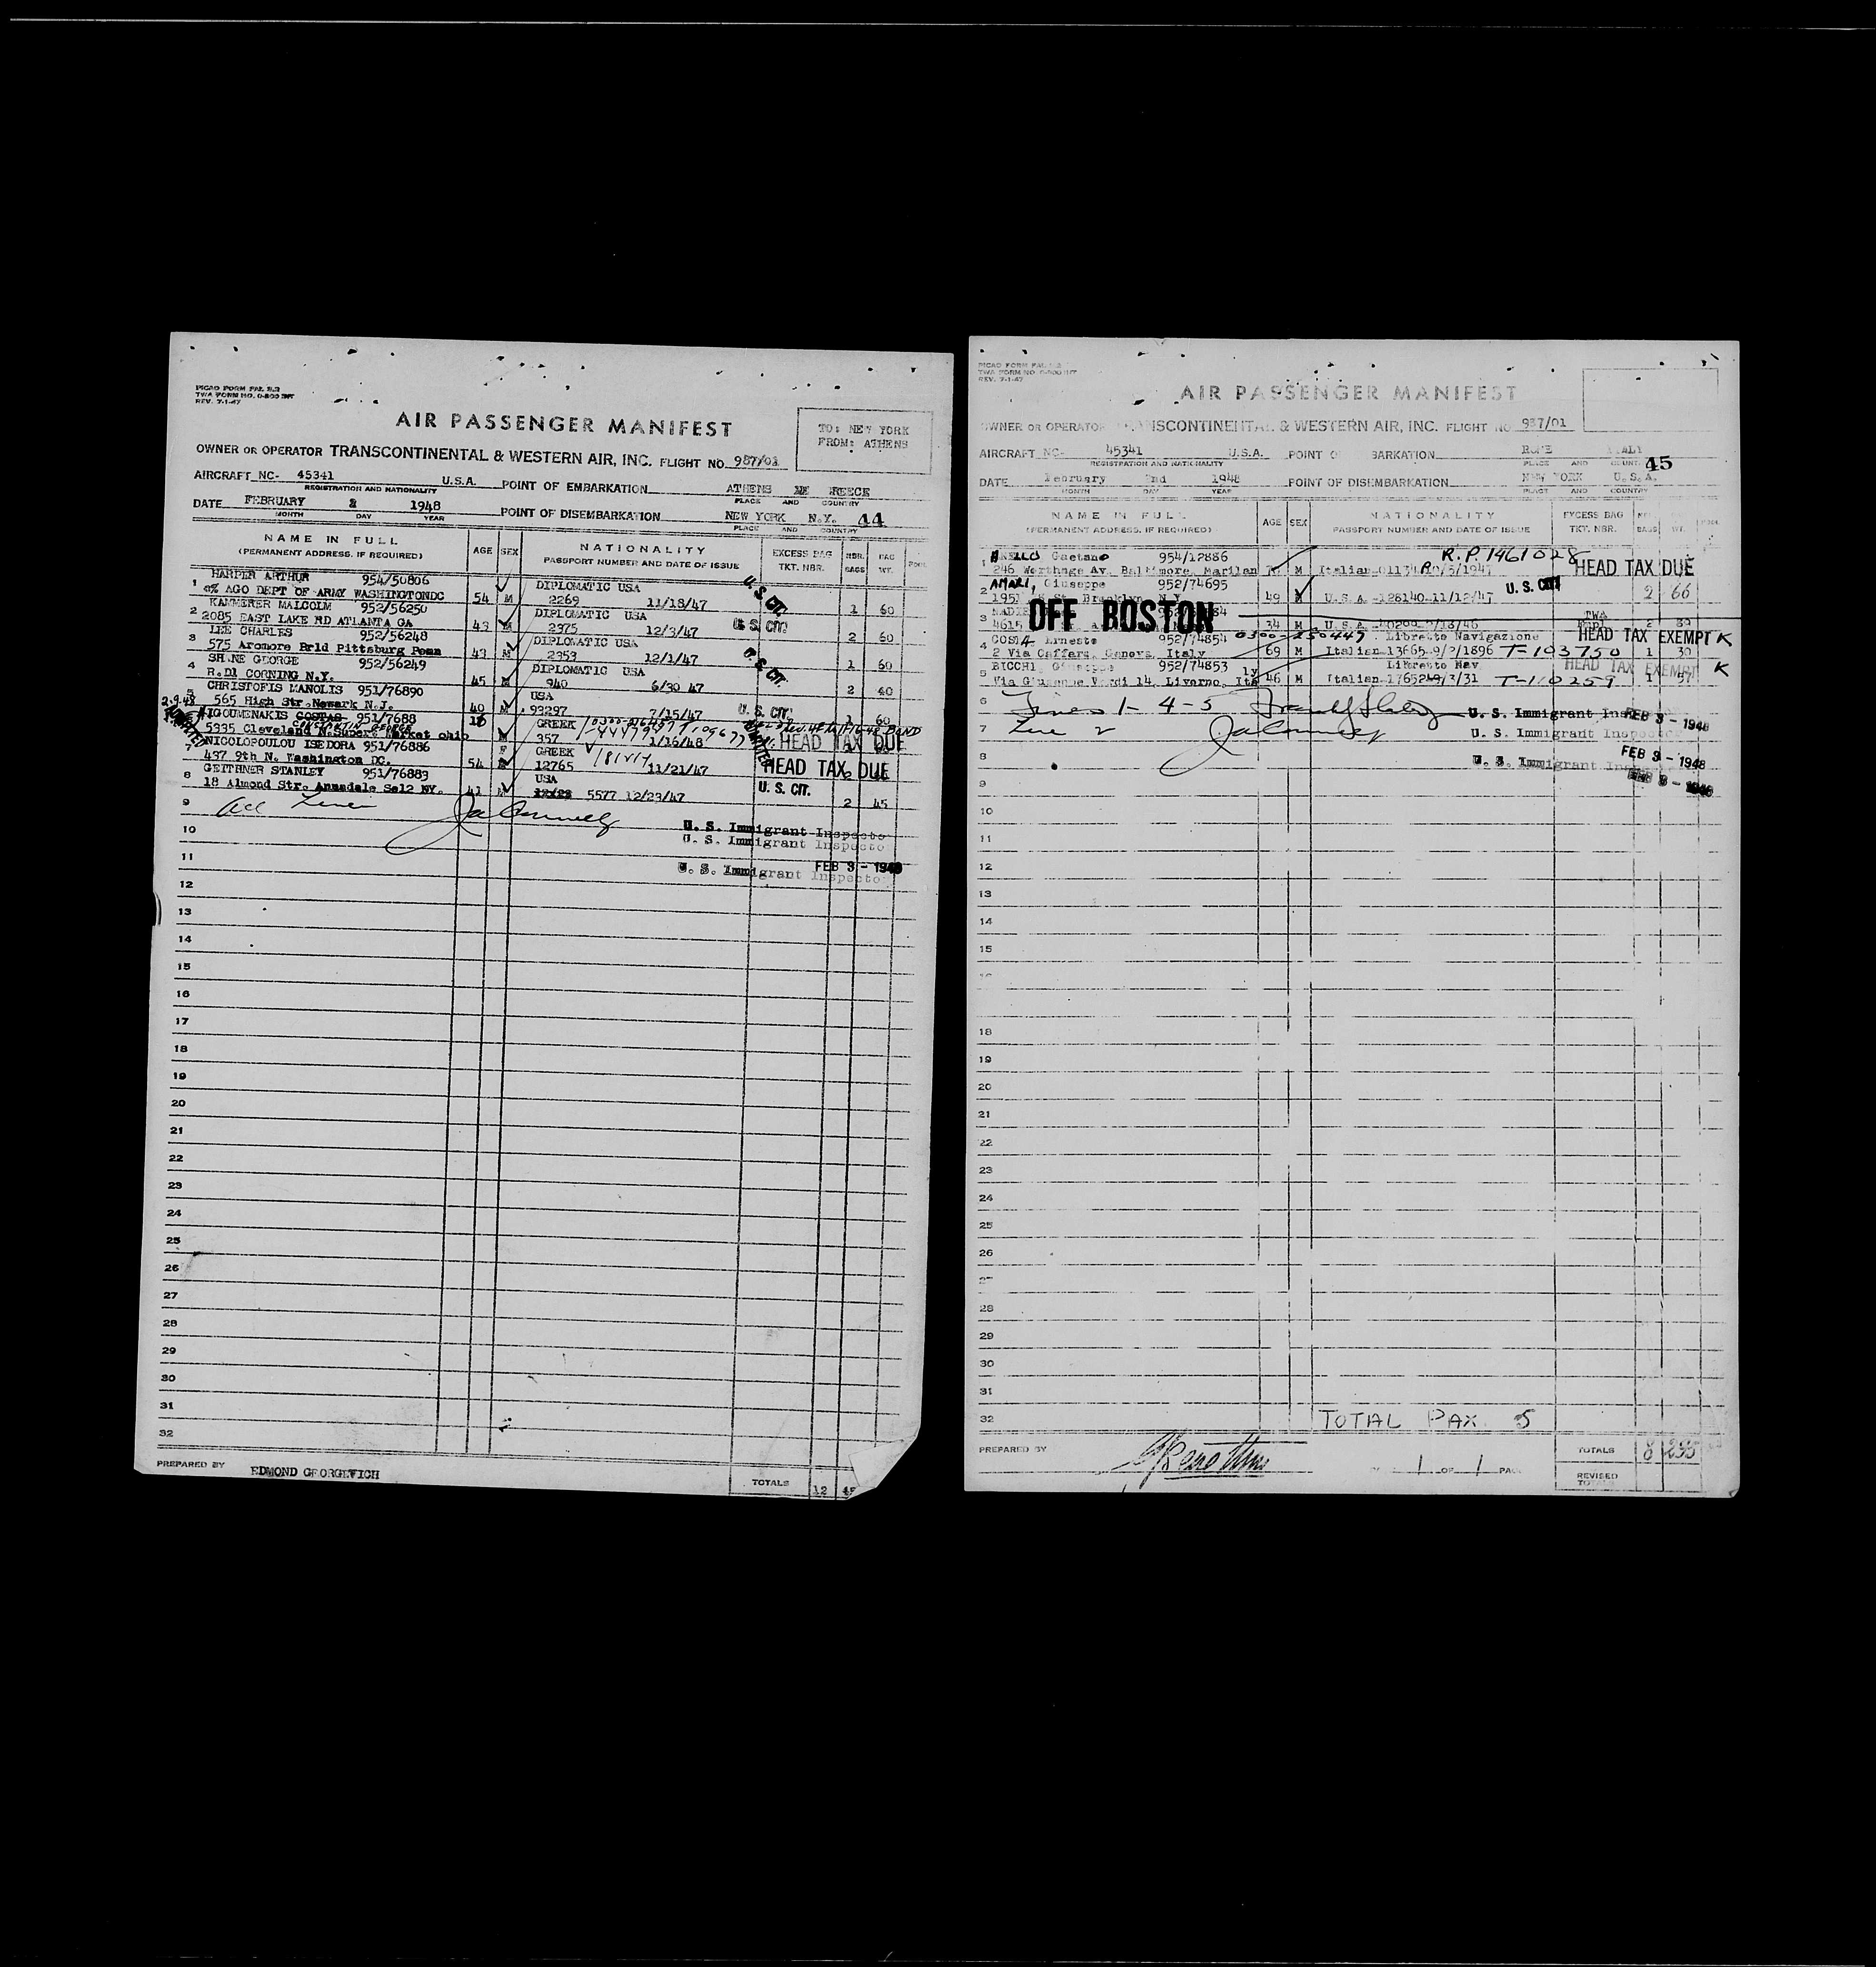 PICAO FORM PAL E.2
TWA FORM NO. O-800 INT
REV. 7-1-47
AIR PASSENGER MANIFEST
TO: NEW YORK
FROM: ATHENS
OWNER OR OPERATOR TRANSCONTINENTAL & WESTERN AIR, INC. FLIGHT NO. 987/01
AIRCRAFT NC- 45341 U.S.A. POINT OF EMBARKATION ATHENS REECE
REGISTRATION AND NATIONALITY PLACE AND COUNTRY
DATE FEBRUARY 2 1948 POINT OF DISEMBARKATION NEW YORK N.Y. 44
MONTH DAY YEAR PLACE AND COUNTRY
NAME IN FULL AGE SEX NATIONALITY EXCESS BAG NBR. BAG
(PERMANENT ADDRESS. IF REQUIRED) PASSPORT NUMBER AND DATE OF ISSUE TKT. NBR. BAGS WT.
1 HARPER ARTHUR 954/50806 DIPLOMATIC USA U. S. CIT.
% AGO DEPT OF ARMY WASHINGTONDC 54 M 2269 11/18/47 1 60
2 KAMMERER MALCOLM 952/56250 DIPLOMATIC USA U. S. CIT.
2085 EAST LAKE RD ATLANTA GA 43 M 2375 12/3/47 2 60
3 LEE CHARLES 952/56248 DIPLOMATIC USA U. S. CIT.
575 Aromore Brld Pittsburg Penn 43 M 2353 12/1/47 1 60
4 SHINE GEORGE 952/56249 DIPLOMATIC USA
R.D1 CORNING N.Y. 45 M 940 6/30 47 2 40
5 CHRISTOFIS MANOLIS 951/76890 USA
565 High Str.Newark N.J. 40 M 93297 7/15/47 U. S. CIT. 1 60
2-9-48 ADMITTED
IGOUMENAKIS COSTAS 951/7688 GREEK
CONSTANTIN GEORGE
5335 Cleveland N.Superc Market ohio M 357 1/16/48 HEAD TAX DUE
7 NICOLOPOULOU ISEDORA 951/76886 F GREEK
437 9th N. Washington DC. 54 12765 11/21/47 HEAD TAX DUE 2
8 GEITHNER STANLEY 951/76883 USA
18 Almond Str. Annadale Sel2 NY. 41 M 5577 12/23/47 U. S. CIT. 2 45
9
10 U. S. Immigrant Inspector
U. S. Immigrant Inspector
11 U. S. Immigrant Inspector FEB 3 - 1948
12
13
14
15
16
17
18
19
20
21
22
23
24
25
26
27
28
29
30
31
32
PREPARED BY EDMOND GEORGEVICH
TOTALS 12
PICAO FORM PAL E.2
TWA FORM NO. O-800 INT
REV. 7-1-47
AIR PASSENGER MANIFEST
OWNER OR OPERATOR TRANSCONTINENTAL & WESTERN AIR, INC. FLIGHT NO 987/01
AIRCRAFT NC- 45341 U.S.A. POINT OF EMBARKATION ROME ITALY
REGISTRATION AND NATIONALITY PLACE AND COUNTRY 45
DATE February 2nd 1948 POINT OF DISEMBARKATION NEW YORK U.S.A.
MONTH DAY YEAR PLACE AND COUNTRY
NAME IN FULL AGE SEX NATIONALITY EXCESS BAG
(PERMANENT ADDRESS. IF REQUIRED) PASSPORT NUMBER AND DATE OF ISSUE TKT. NBR. BAGS WT.
1 Gaetano 954/12886 R.P. 1461028
246 Worthage Av. Baltimore, Marilan M Italian HEAD TAX DUE
2 AMARI, Giuseppe 952/74695 U. S. CIT.
Brooklyn N.Y. 49 M U.S.A. 128140 11/12/47 2 66
3 OFF BOSTON TWA
4615 34 M U.S.A. 2
4 COSMA Ernesto 952/74854 0300-250447 Libretto Navigazione HEAD TAX EXEMPT K
2 Via Caffaro, Genova, Italy 69 M Italian 13665 9/2/1896 T-103750 1 30
5 BICCHI, Giuseppe 952/74853 Libretto Nav. HEAD TAX EXEMPT K
Via Giuseppe Verdi 14, Livorno, Italy 46 M Italian T-110259 1
6 Lines 1-4-5 U. S. Immigrant Inspector FEB 3 - 1948
7 Line 2 U. S. Immigrant Inspector
8 U. S. Immigrant Inspector FEB 3 - 1948
9 FEB 3 - 1948
10
11
12
13
14
15
18
19
20
21
22
23
24
25
26
27
28
29
30
31
32 TOTAL PAX 5
PREPARED BY 1 OF 1 PAGE
TOTALS 8 295
REVISED TOTALS